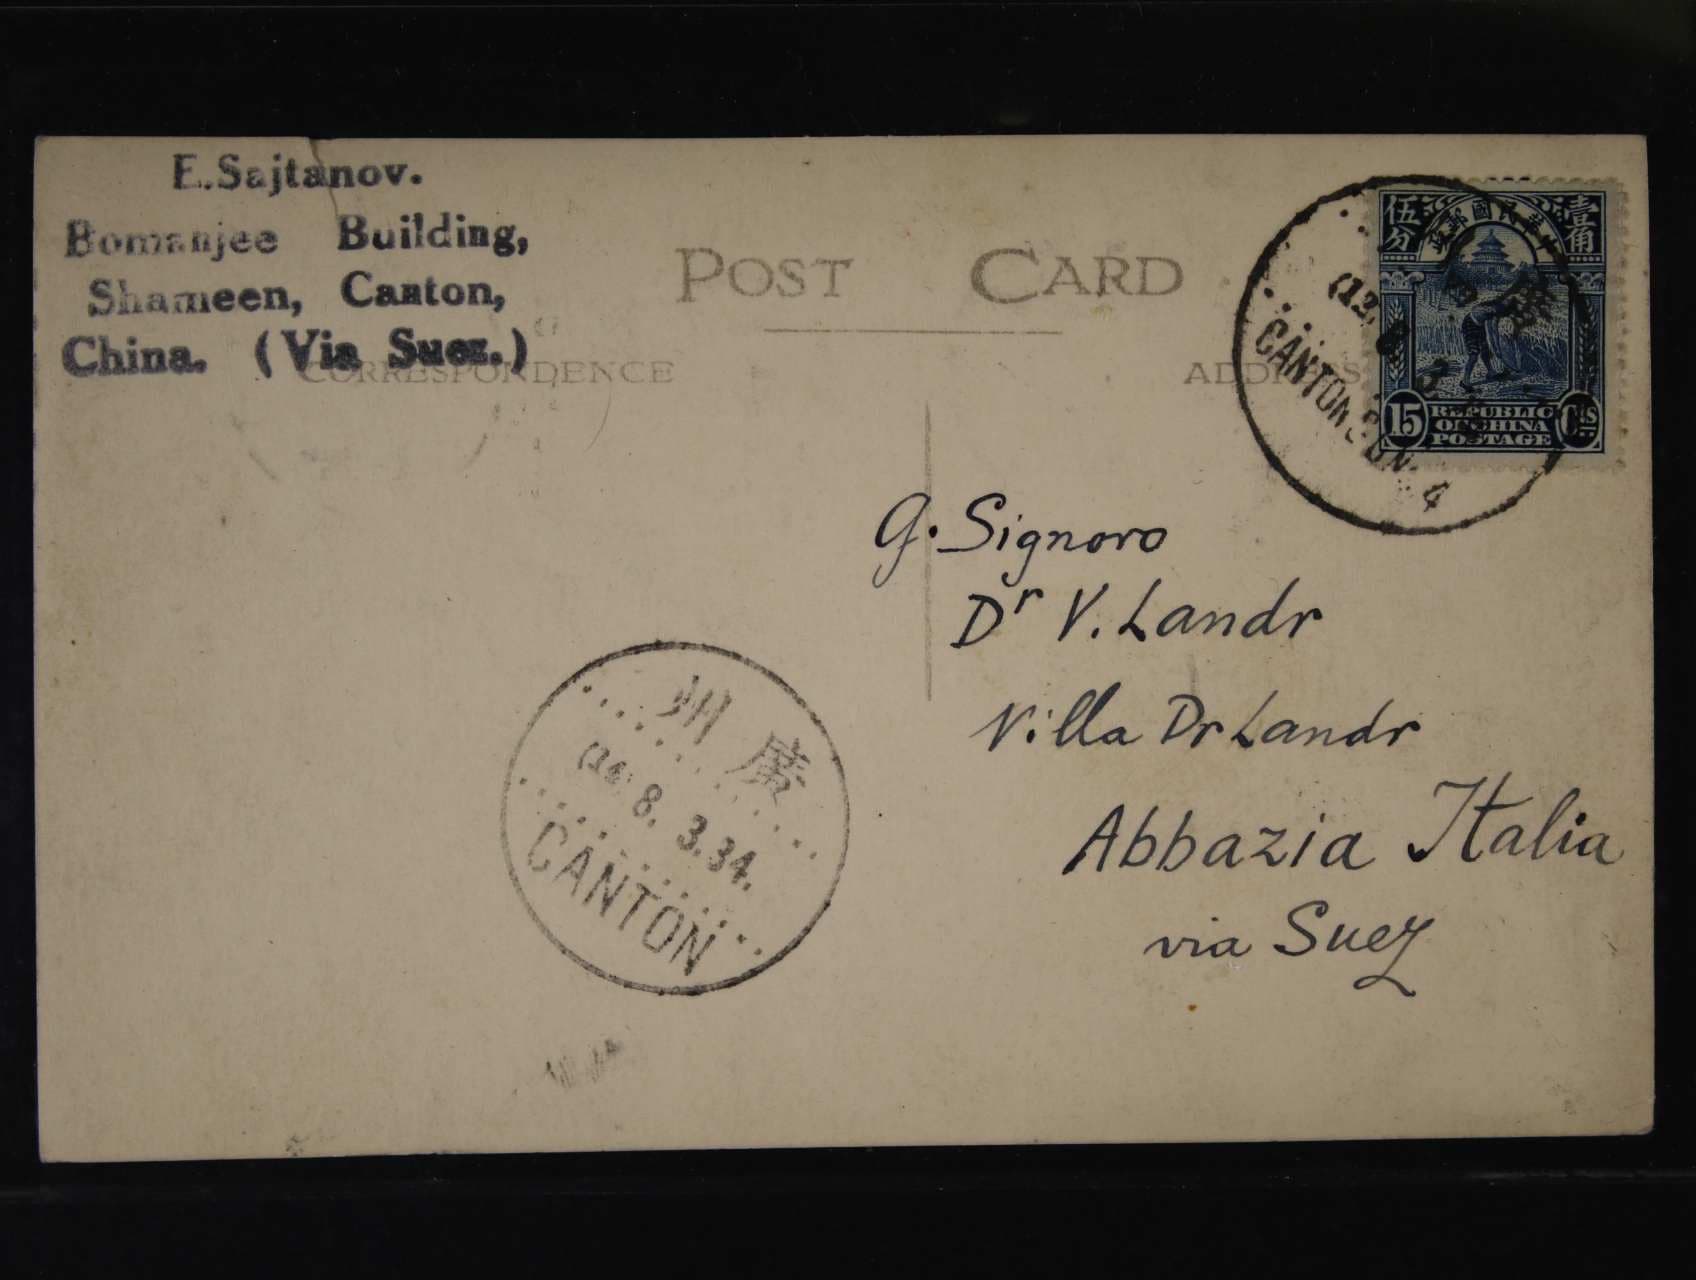 E.Sajtanov.
Bomanjee Building,
Shameen, Canton,
China. (Via Suez.)
POST CARD
CORRESPONDENCE
ADDRESS
伍分 中華民國郵政 壹角
15 REPUBLIC OF CHINA POSTAGE Cts
(12) 8. 3.
CANTON SUB. 4
G. Signoro
Dr V. Landr
Villa Dr Landr
Abbazia Italia
via Suez
廣州
8. 3.34.
CANTON